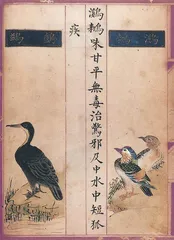 鸂鶒味甘平無毒治驚邪及中水中短狐
疾